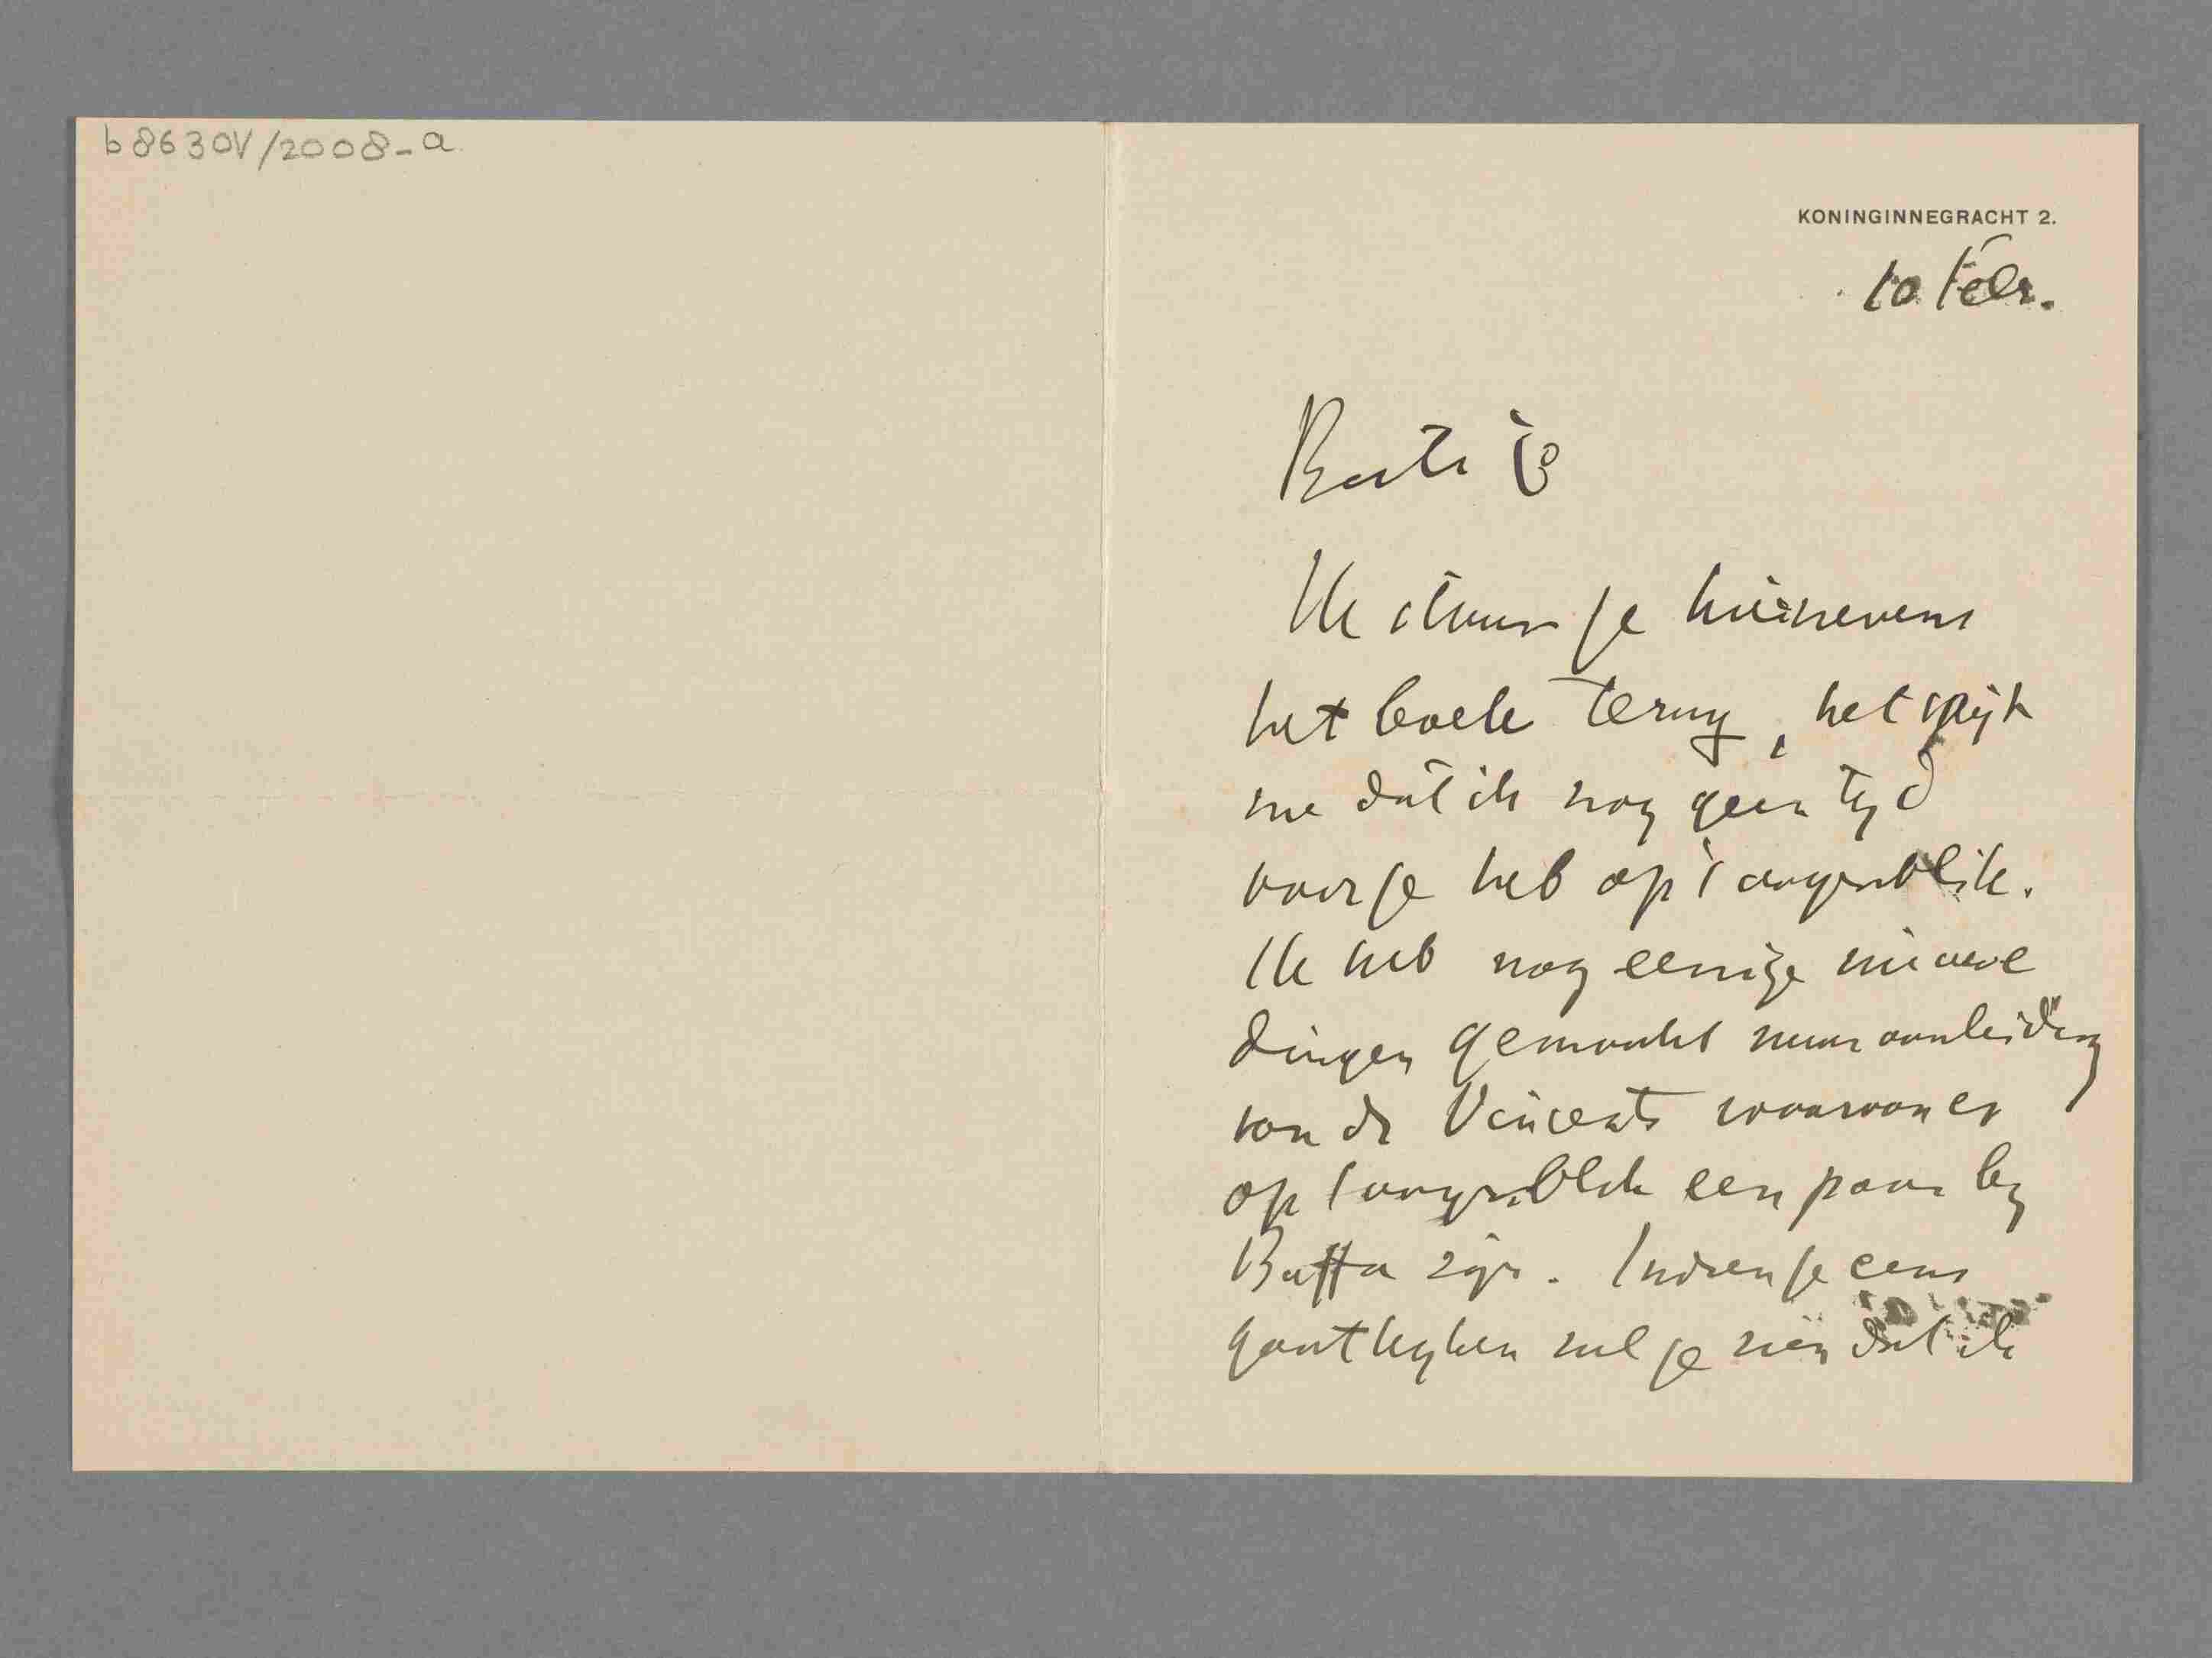 b8630V/2008-a
KONINGINNEGRACHT 2.
10 Febr.
Beste
Ik stuur je hiernevens
het boek terug, het spijt
me dat ik nog geen tyd
voor je heb op 't oogenblik.
Ik heb nog eenige nieuwe
dingen gemaakt naar aanleiding
van de Vincents waarvan er
op 't oogenblik een paar by
Buffa zijn. Indien je eens
gaat kyken zul je zien dat ik